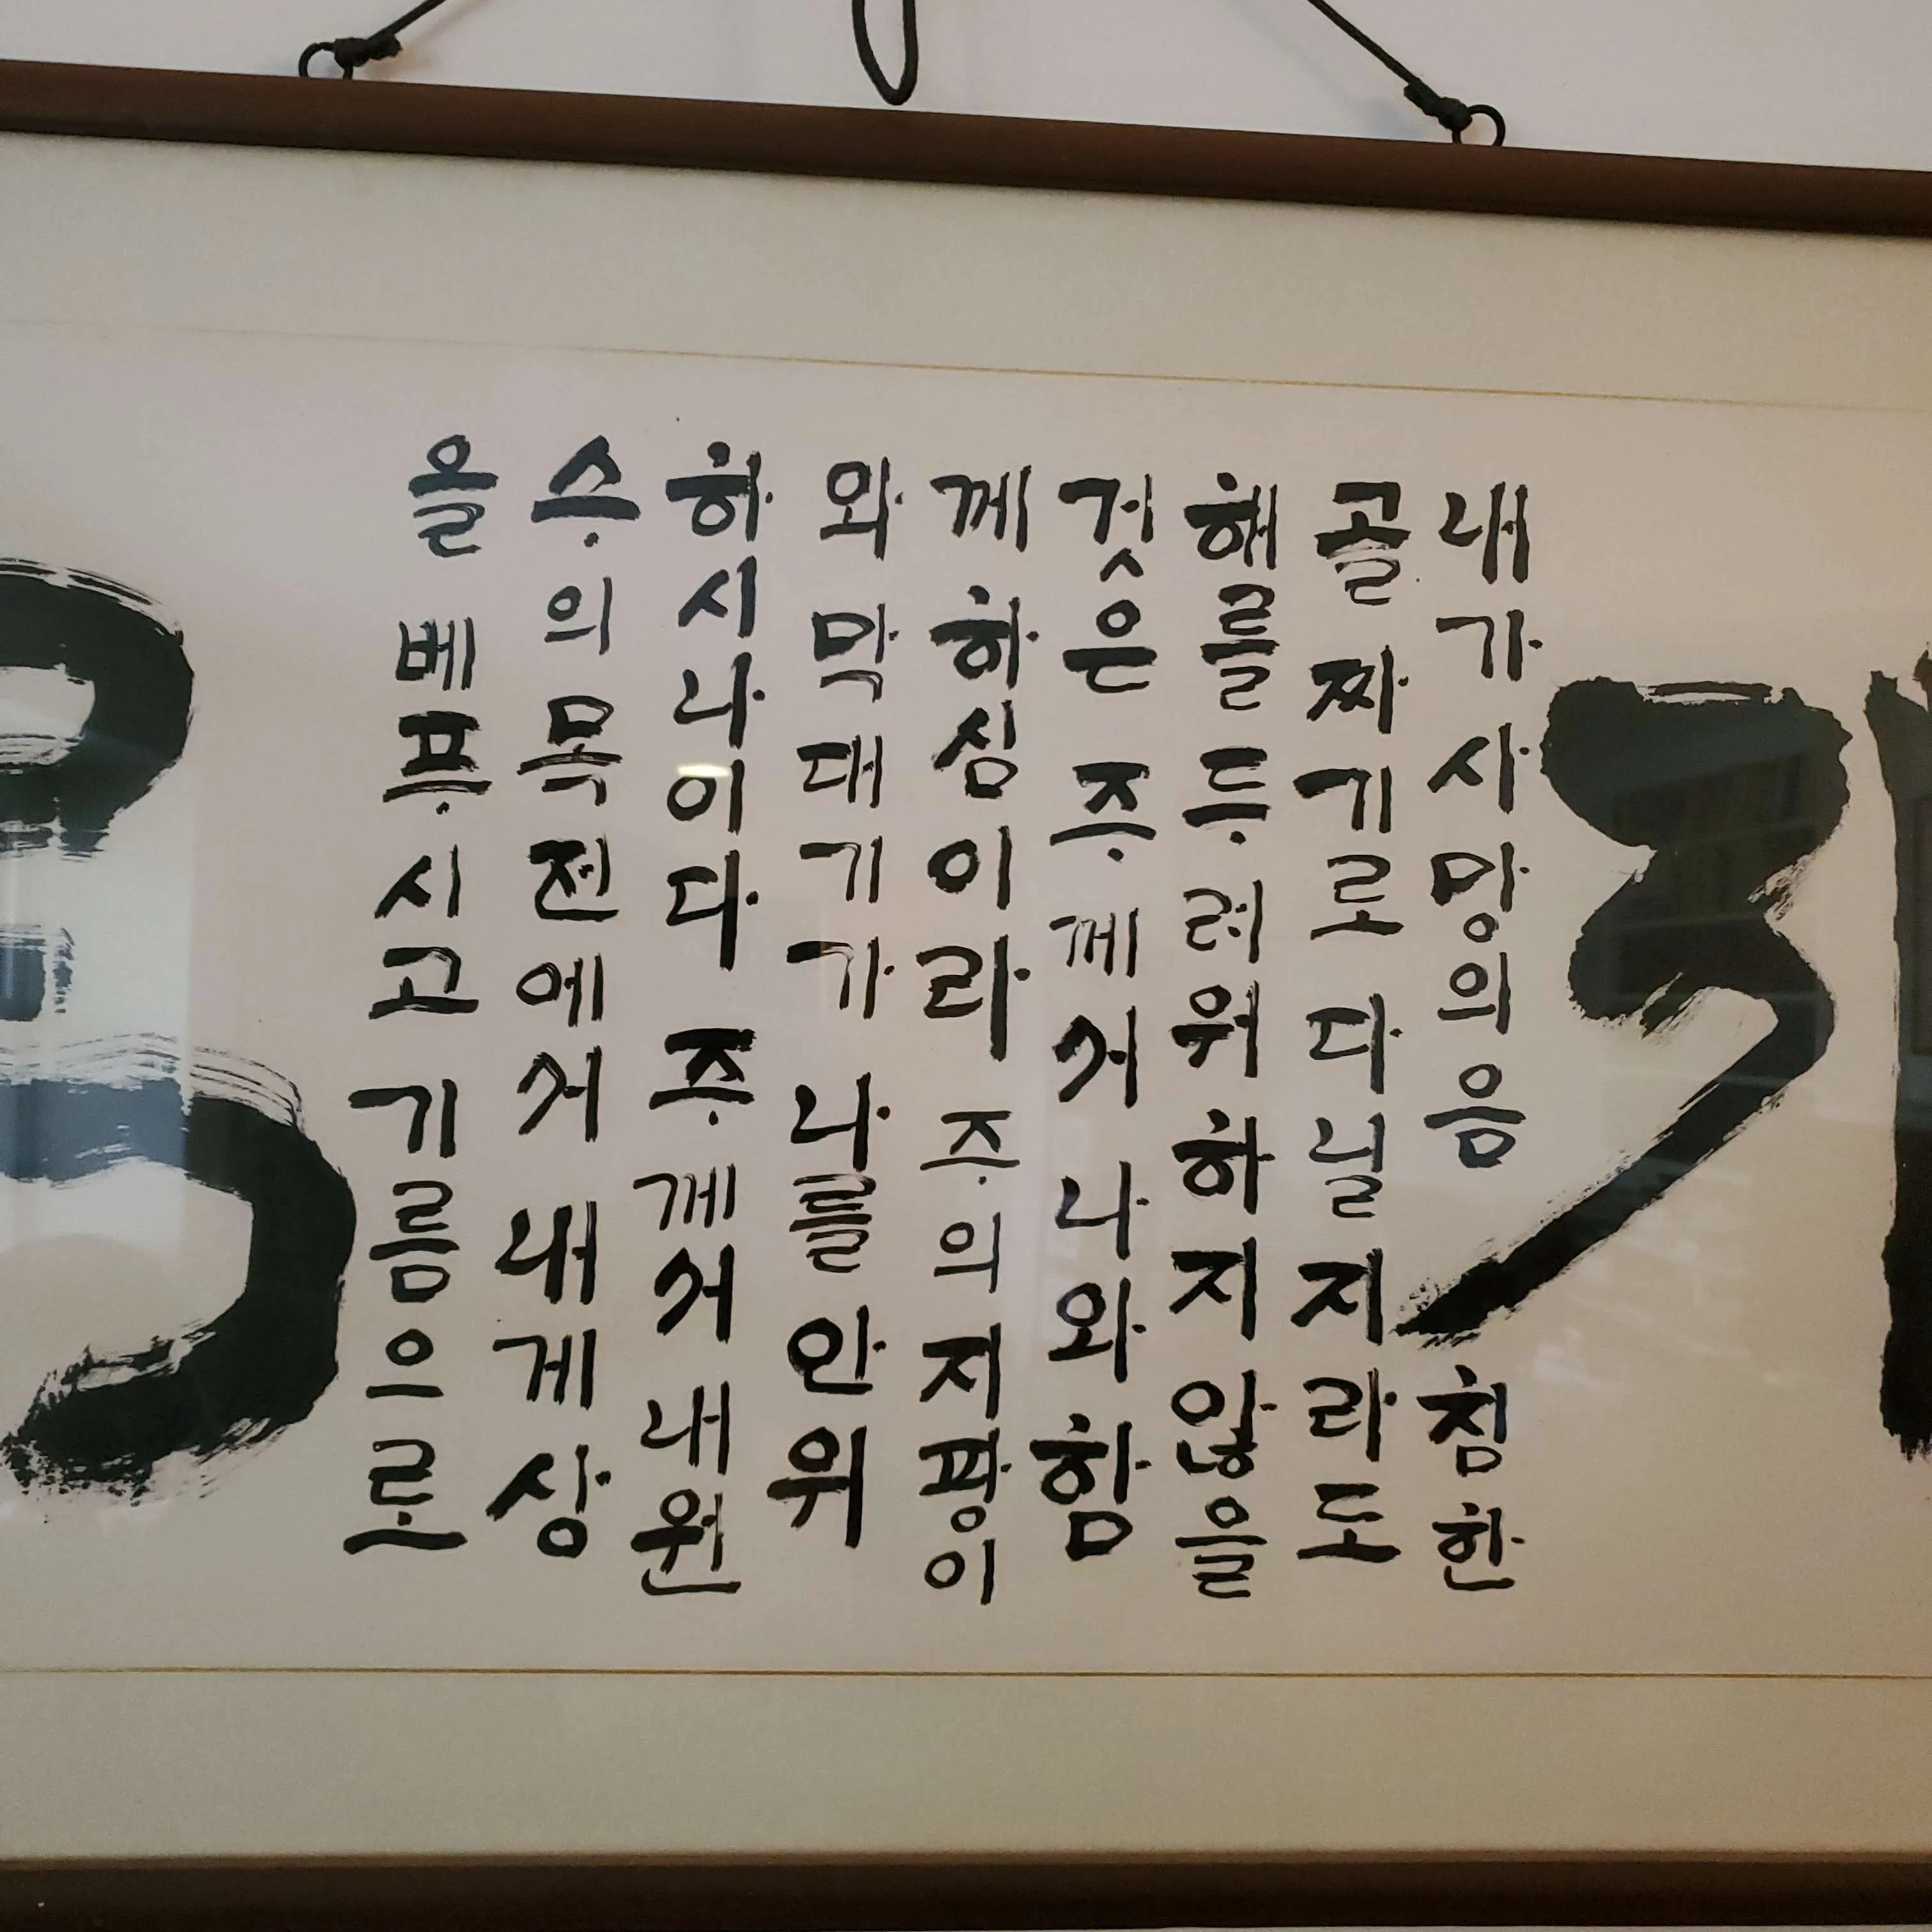 내가 사망의 음침한
골짜기로 다닐지라도
해를 두려워하지 않을
것은 주께서 나와 함
께 하심이라 주의 지팡이
와 막대기가 나를 안위
하시나이다 주께서 내 원
수의 목전에서 내게 상
을 베푸시고 기름으로